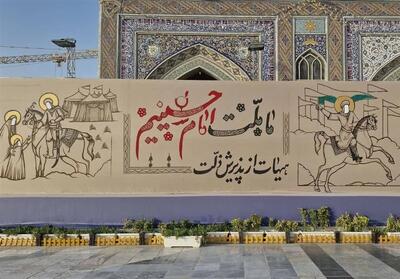 ما ملت امام حسینیم
هیهات از پذیرش ذلت